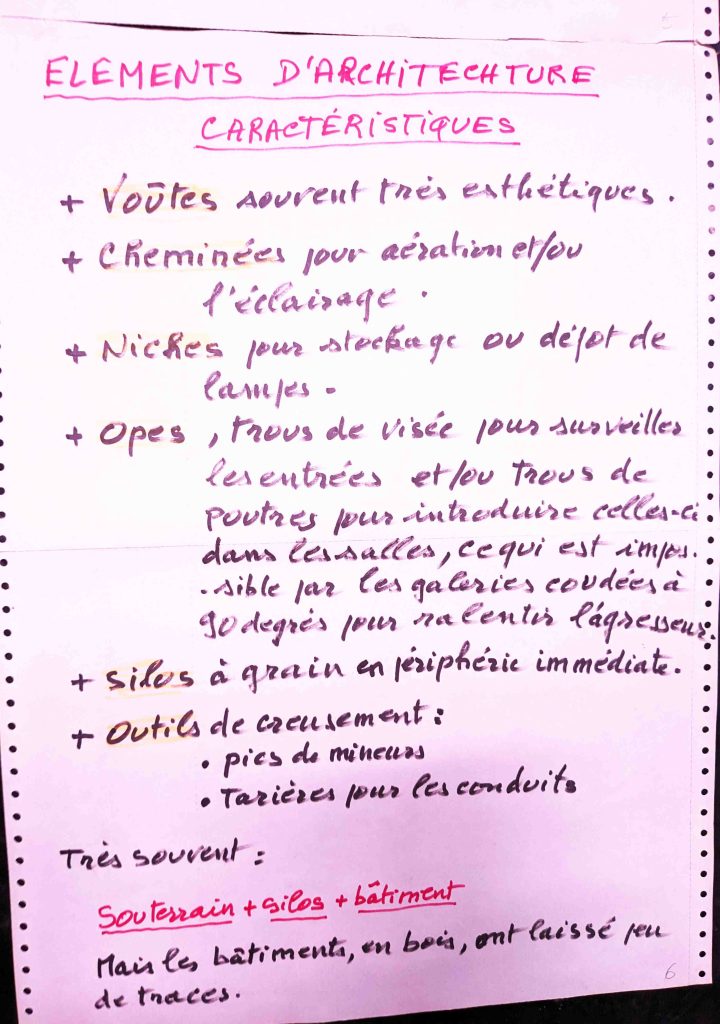 5
ELEMENTS D'ARCHITECHTURE
CARACTÉRISTIQUES
+ Voûtes souvent très esthétiques.
+ Cheminées pour aération et/ou
l'éclairage.
+ Niches pour stockage ou dépot de
lampes.
+ Opes, trous de visée pour surveiller
les entrées et/ou trous de
poutres pour introduire celles-ci
dans les salles, ce qui est impos.
.sible par les galeries coudées à
90 degrés pour ralentir l'agresseur.
+ Silos à grain en périphérie immédiate.
+ Outils de creusement :
• pics de mineurs
• Tarières pour les conduits
Très souvent :
Souterrain + silos + bâtiment
Mais les bâtiments, en bois, ont laissé peu
de traces.
6